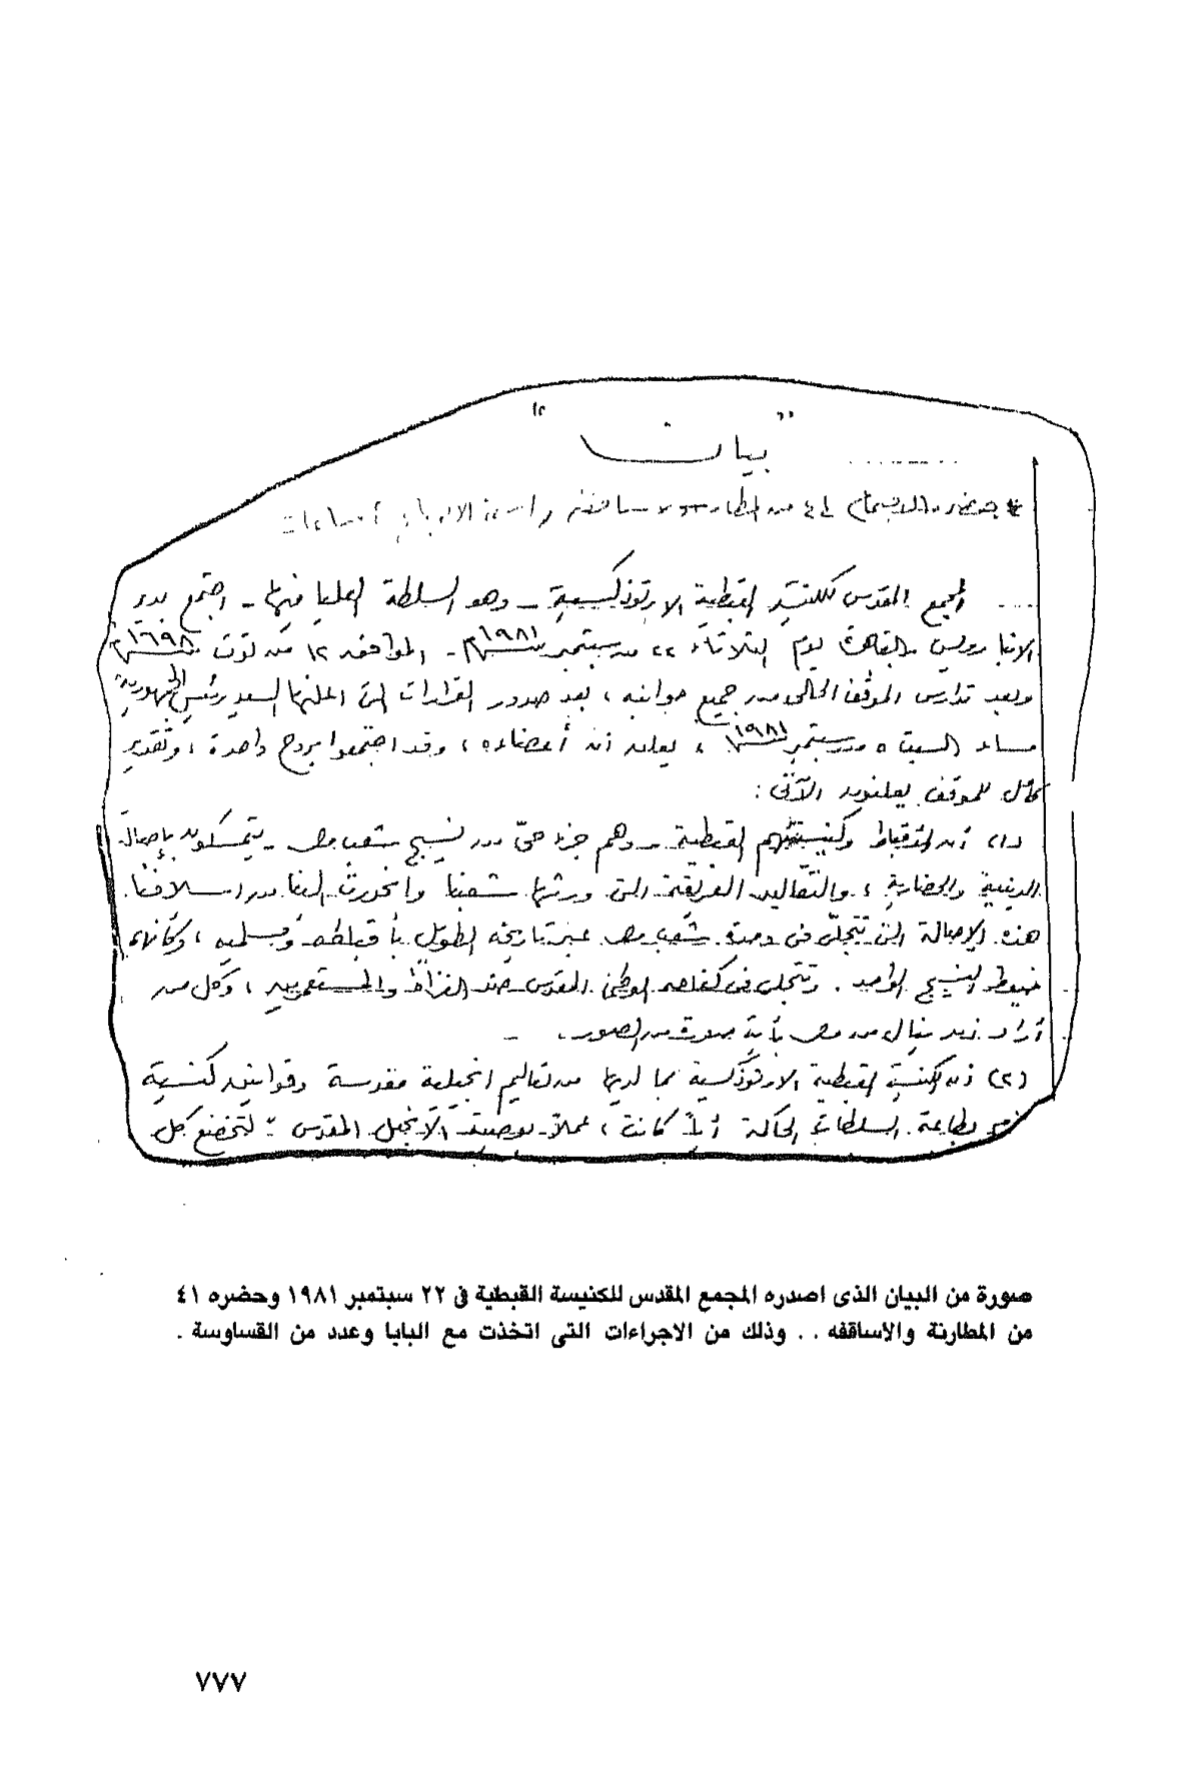 "بيان"
المجمع المقدس للكنيسة القبطية الارثوذكسية - وهو السلطة العليا فيها - اجتمع بدير
الانبا رويس بالقاهرة يوم الثلاثاء ٢٢ من سبتمبر سنة ١٩٨١م - الموافق ١٢ من توت سنة ١٦٩٨
وبعد تدارس الموقف الحالى من جميع جوانبه ، بعد صدور القرارات التى اعلنها السيد رئيس الجمهورية
مساء السبت ٥ من سبتمبر سنة ١٩٨١ ، يعلن أن أعضاءه ، وقد اجتمعوا بروح واحدة ، وتقدير
كامل للموقف يعلنون الآتى :
(١) أن الاقباط وكنيستهم القبطية - وهم جزء حىّ من نسيج شعب مصر - يتمسكون بإصالة
الدينية والحضارية ، والتقاليد العريقة التى ورثها شعبنا وانحدرت الينا من اسلافنا .
هذه الاصالة التى تتجلّى فى وحدة شعب مصر عبر تاريخه الطويل بأقباطه ومسلميه ، وكأنهم
خيوط النسيج الواحد . وتتجلى فى كفاحه الوطنى المقدس ضد الغزاة والمستعمرين ، وكل من
أراد أن ينال من مصر بأية صورة من الصور .
(٢) أن الكنيسة القبطية الارثوذكسية بما لديها من تعاليم انجيلية مقدسة وقوانين كنسية
بطاعة السلطات الحاكمة أيا كانت ، عملاً بوصية الانجيل المقدس : لتخضع كل
صورة من البيان الذى اصدره المجمع المقدس للكنيسة القبطية فى ٢٢ سبتمبر ١٩٨١ وحضره ٤١
من المطارنة والاساقفه . . وذلك من الاجراءات التى اتخذت مع البابا وعدد من القساوسة .
٧٧٧